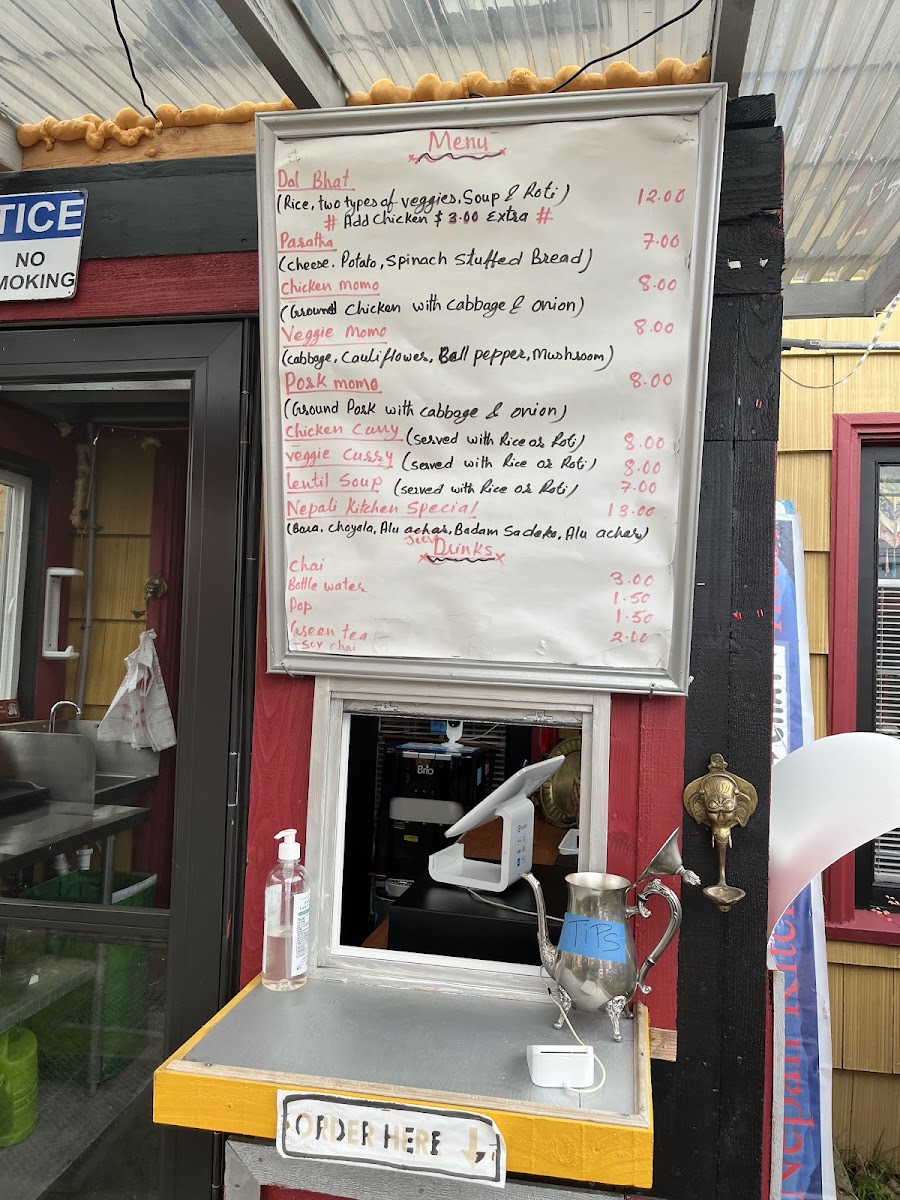 TICE
NO
MOKING
Menu
Dal Bhat
(Rice, two types of veggies, Soup & Roti) 12.00
# Add Chicken $ 3.00 Extra #
Paratha 7.00
(cheese. Potato, Spinach Stuffed Bread)
Chicken momo 8.00
(Ground Chicken with cabbage & onion)
Veggie momo 8.00
(cabbage, Cauliflower, Bell pepper, Mushroom)
Pork momo 8.00
(Ground Pork with cabbage & onion)
Chicken Curry (served with Rice or Roti) 8.00
veggie curry (served with Rice or Roti) 8.00
lentil Soup (served with Rice or Roti) 7.00
Nepali Kitchen Special 13.00
(Bara, choyola, Alu achar, Badam Sadeko, Alu achar)
Drinks
chai 3.00
Bottle water 1.50
Pop 1.50
Green tea 2.00
soy chai
Brio
TIPS
ORDER HERE
Nepali Kitc